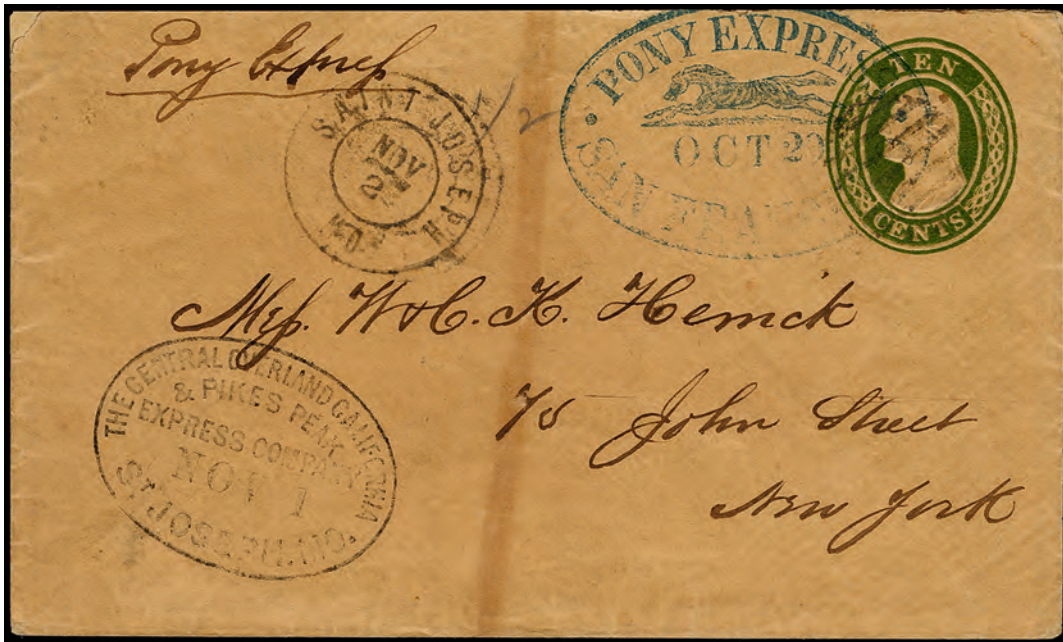 Pony Express
SAINT JOSEPH
NOV
MO.
PONY EXPRESS
OCT 20
SAN FRAN
TEN
CENTS
Mess. W & C. K. Herrick
75 John Street
New York
THE CENTRAL OVERLAND CALIFORNIA
& PIKES PEAK
EXPRESS COMPANY
NOV 1
ST JOSEPH. MO.